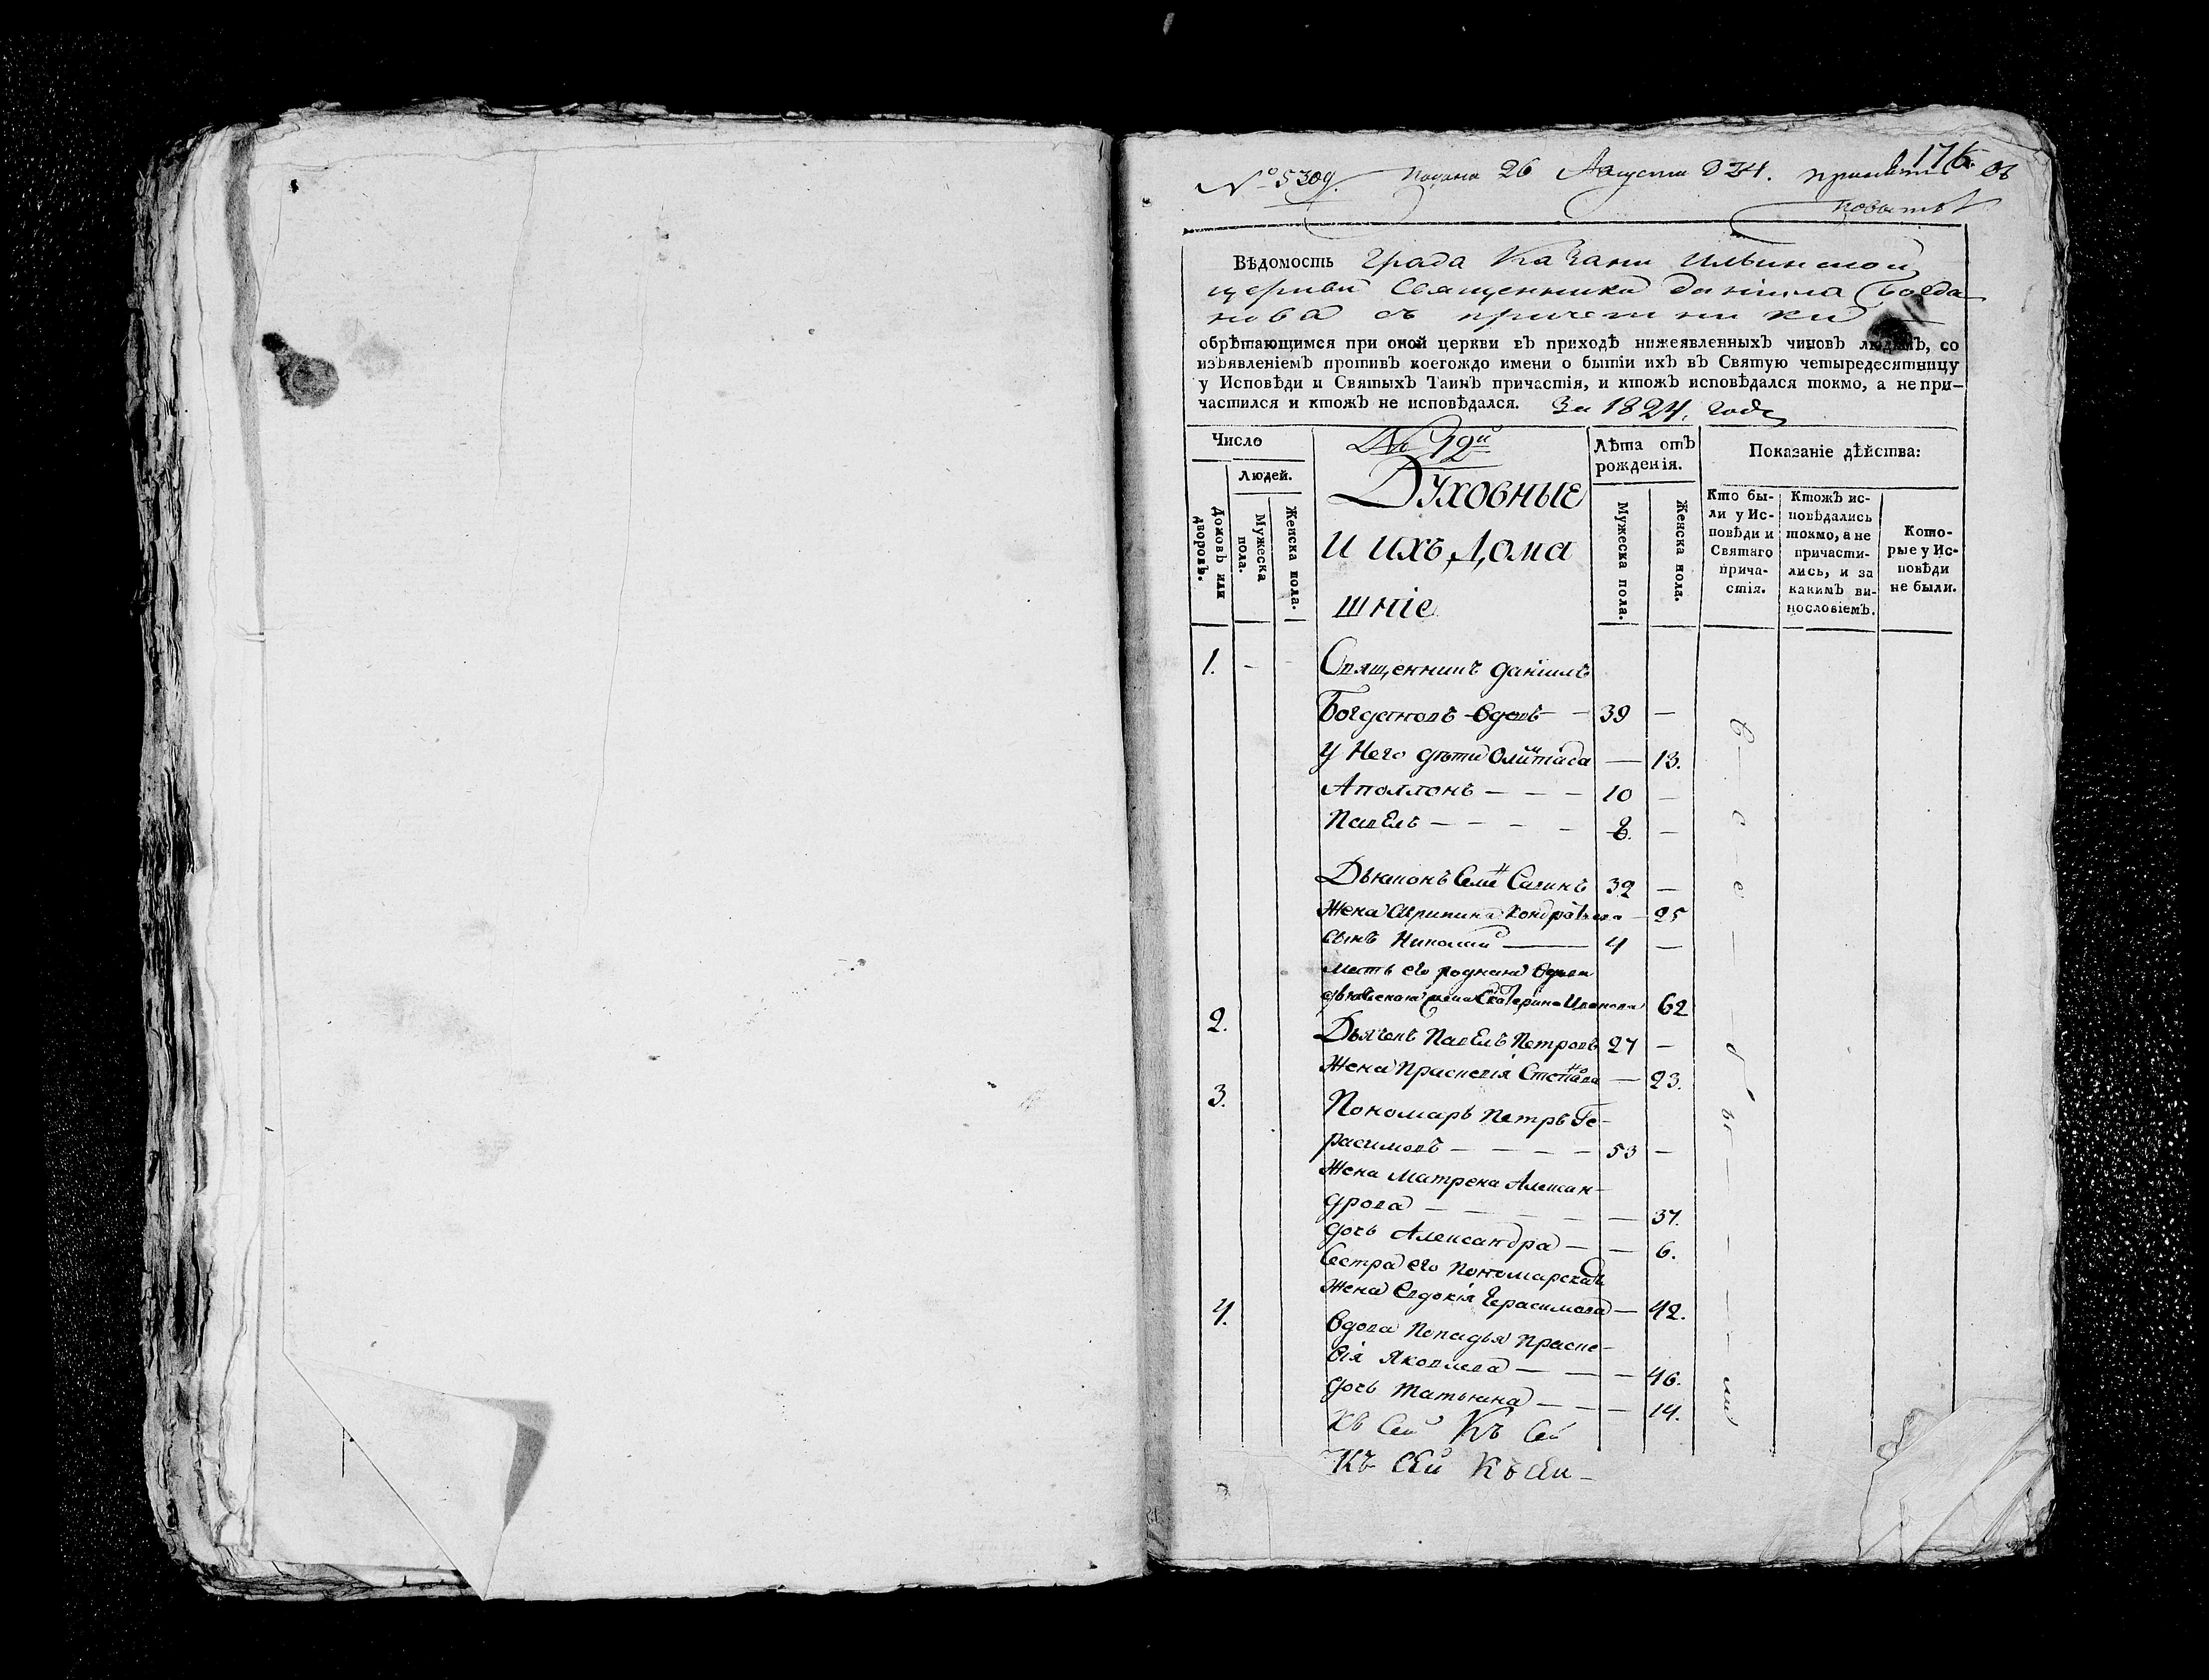 176.
№ 5309. Подано 26 Августа 824.
Вѣдомость Града Казани Ильинской
церкви Священника Даніила Богда-
нова съ причетники
обрѣтающимся при оной церкви въ приходѣ нижеявленныхъ чиновъ людѣмъ, со
изъявленіемъ противъ коегождо имени о бытіи ихъ въ Святую четыредесятницу
у Исповѣди и Святыхъ Таинъ причастія, и ктожъ исповѣдался токмо, а не при-
частился и ктожъ не исповѣдался. За 1824. годъ
Число
Людей.
Домовъ или дворовъ.
Мужеска пола.
Женска пола.
№ 12й
Духовные
и ихъ Дома
шніе
Лѣта отъ рожденія.
Мужеска пола.
Женска пола.
Показаніе дѣйства:
Кто бы-
ли у Ис-
повѣди и
Святаго
прича-
стія.
Ктожъ ис-
повѣдались
токмо, а не
причасти-
лись, и за
какимъ ви-
нословіемъ.
Кото-
рые у Ис-
повѣди
не были.
1. - - Священникъ Даніилъ
Богдановъ вдовъ — 39 —
У Него дѣти Олимпіада — 13.
Аполлонъ — — — 10 —
Павелъ — — — — 8. —
Дьяконъ Семенъ Сагинъ 32 —
Жена Агрипина Кондратьева — 25
Сынъ Николай — 4 —
Мать его родная вдова
Екатерина Иванова 62
2. Дьячекъ Павелъ Петровъ 27 —
Жена Прасковія Степанова — 23.
3. Пономарь Петръ Ге-
расимовъ — — — — 53 —
Жена Матрена Алексан-
дрова — — — — — 37.
Дочь Александра — — 6.
Сестра его Пономарская
Жена Евдокія Герасимова — 42.
4. Вдова Попадья Праско-
вія Яковлева — — — 46.
Дочь Татьяна — — — 14.
в — с — е — — б ы — — — — ли
Къ Сей Къ Сей
Къ Сей Къ Сей